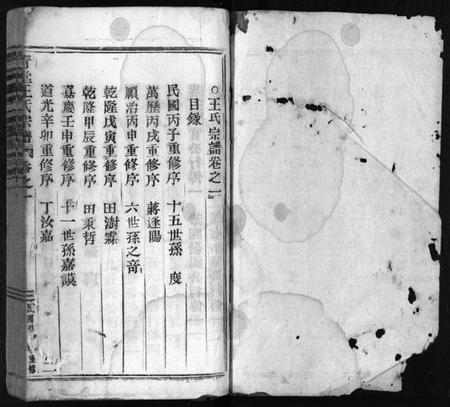 ○王氏宗譜卷之一
目錄
民國丙子重修序 十五世孫 度
萬歷丙戌重修序 蔣逢陽
順治丙申重修序 六世孫之奇
乾隆戊寅重修序 田澍霖
乾隆甲辰重修序 田秉哲
嘉慶壬申重修序 十一世孫嘉謨
道光辛卯重修序 丁汝嘉
王氏宗譜 卷之一
重修